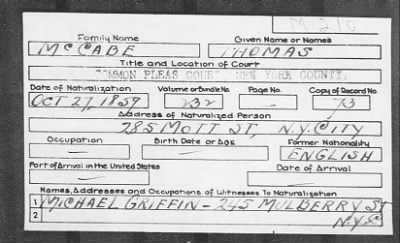 M 210
Family Name Given Name or Names
McCABE THOMAS
Title and Location of Court
COMMON PLEAS COURT, NEW YORK COUNTY.
Date of Naturalization Volume or Bundle No. Page No. Copy of Record No.
OCT 27, 1859 232 — 73
Address of Naturalized Person
285 MOTT ST, N.Y. CITY
Occupation Birth Date or Age Former Nationality
— — ENGLISH
Port of Arrival in the United States Date of Arrival
— —
Names, Addresses and Occupations of Witnesses To Naturalization
1 MICHAEL GRIFFIN - 245 MULBERRY ST
2 N.Y.C